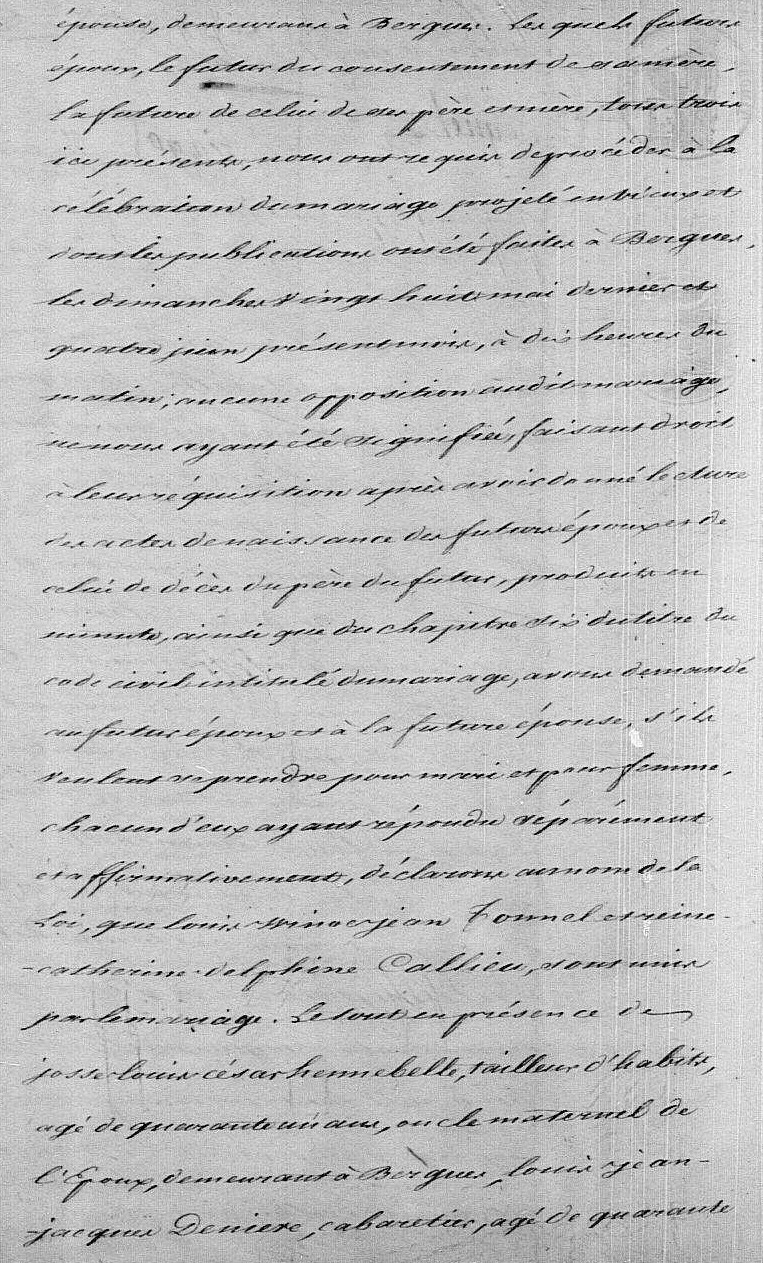 épouse, demeurans à Bergues. Les quels futurs
époux, le futur du consentement de sa mère,
la future de celui de ses père et mère, tous trois
ici présents, nous ont requis de procéder à la
célébration du mariage projeté entr'eux et
dont les publications ont été faites à Bergues,
les dimanches vingt huit mai dernier et
quatre juin présent mois, à dix heures du
matin; aucune opposition audit mariage,
ne nous ayant été signifiée, faisant droit
à leur réquisition après avoir donné lecture
des actes de naissance des futurs époux et de
celui de décès du père du futur, produits en
minute, ainsi que du chapitre six du titre du
code civil intitulé du mariage, avons demandé
au futur époux et à la future épouse, s'ils
veulent se prendre pour mari et pour femme,
chacun d'eux ayant répondu séparément
et affirmativement, déclarons au nom de la
Loi, que louis Winoc jean Tonnel et reine-
-catherine-delphine Callieu, sont unis
par le mariage. Le tout en présence de
josse louis césar hennebelle, tailleur d'habits,
agé de quarante un ans, oncle maternel de
l'Epoux, demeurant à Bergues, louis-jean-
-jacques Deniere, cabaretier, agé de quarante